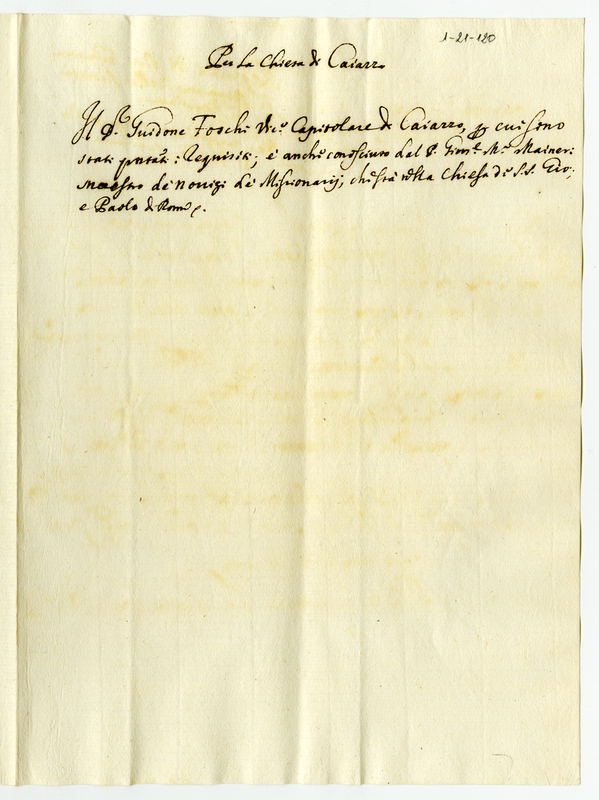 1-21-120
Per La Chiesa di Caiazzo
Il D.r Guidone Foschi Vic.o Capitolare di Caiazzo, p cui sono
stati pntati i Requisiti; è anche conosciuto dal P. M.a Maineri
Maestro de novizi de Missionarij, che stà nella Chiesa di S.S. Gio:
e Paolo di Roma